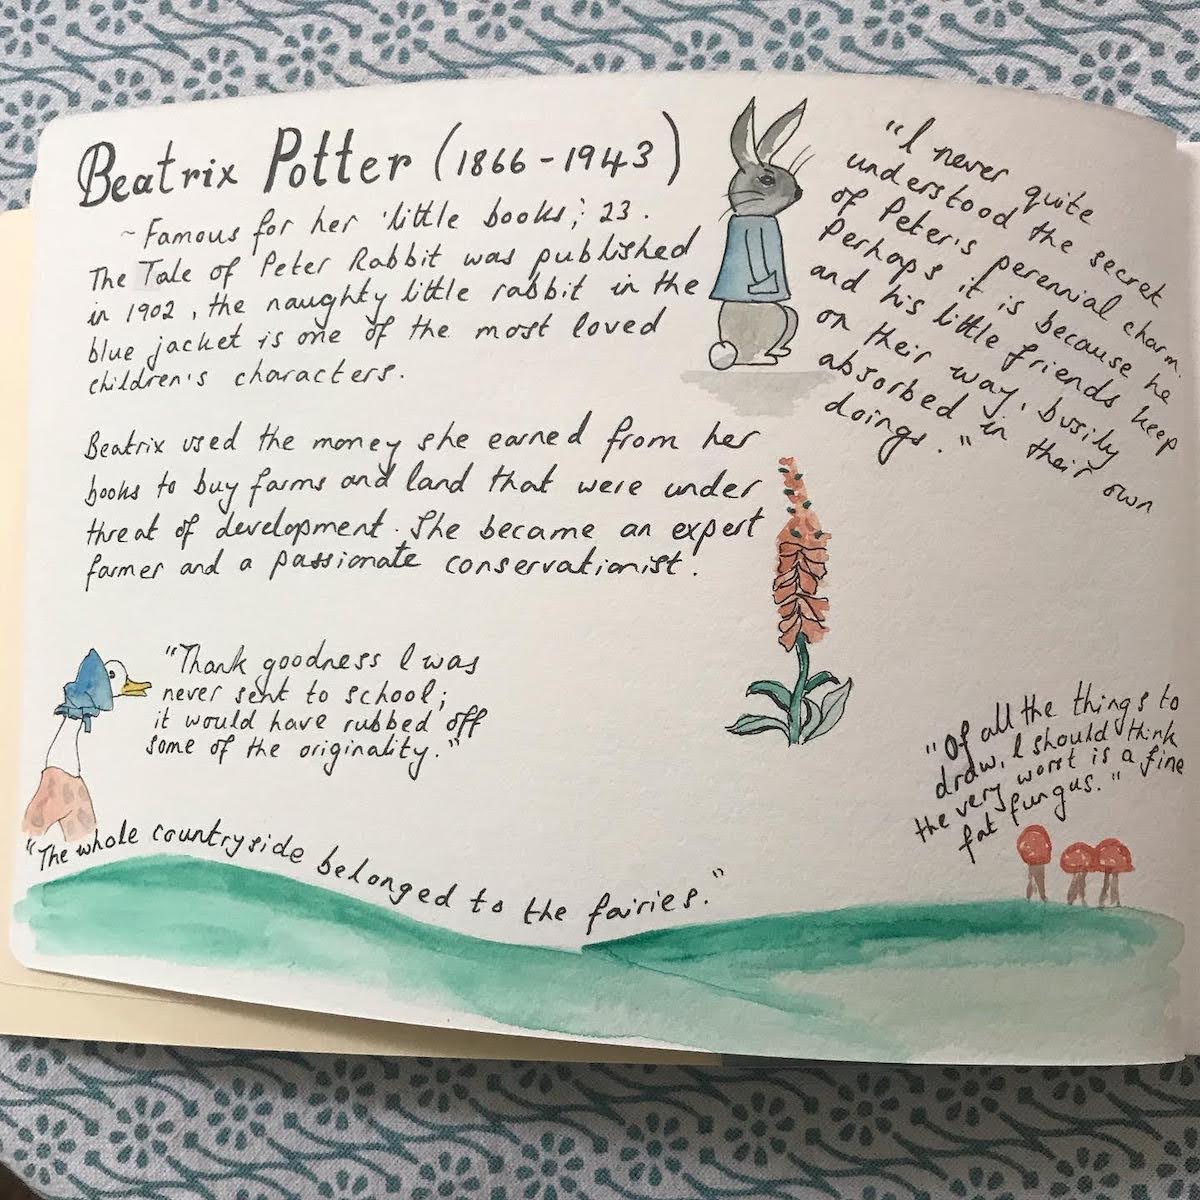 Beatrix Potter (1866-1943)
~ Famous for her 'little books', 23.
The Tale of Peter Rabbit was published
in 1902, the naughty little rabbit in the
blue jacket is one of the most loved
children's characters.
Beatrix used the money she earned from her
books to buy farms and land that were under
threat of development. She became an expert
farmer and a passionate conservationist.
"I never quite
understood the secret
of Peter's perennial charm.
Perhaps it is because he
and his little friends keep
on their way, busily
absorbed in their own
doings."
"Thank goodness I was
never sent to school;
it would have rubbed off
some of the originality."
"Of all the things to
draw, I should think
the very worst is a fine
fat fungus."
"The whole countryside belonged to the fairies."